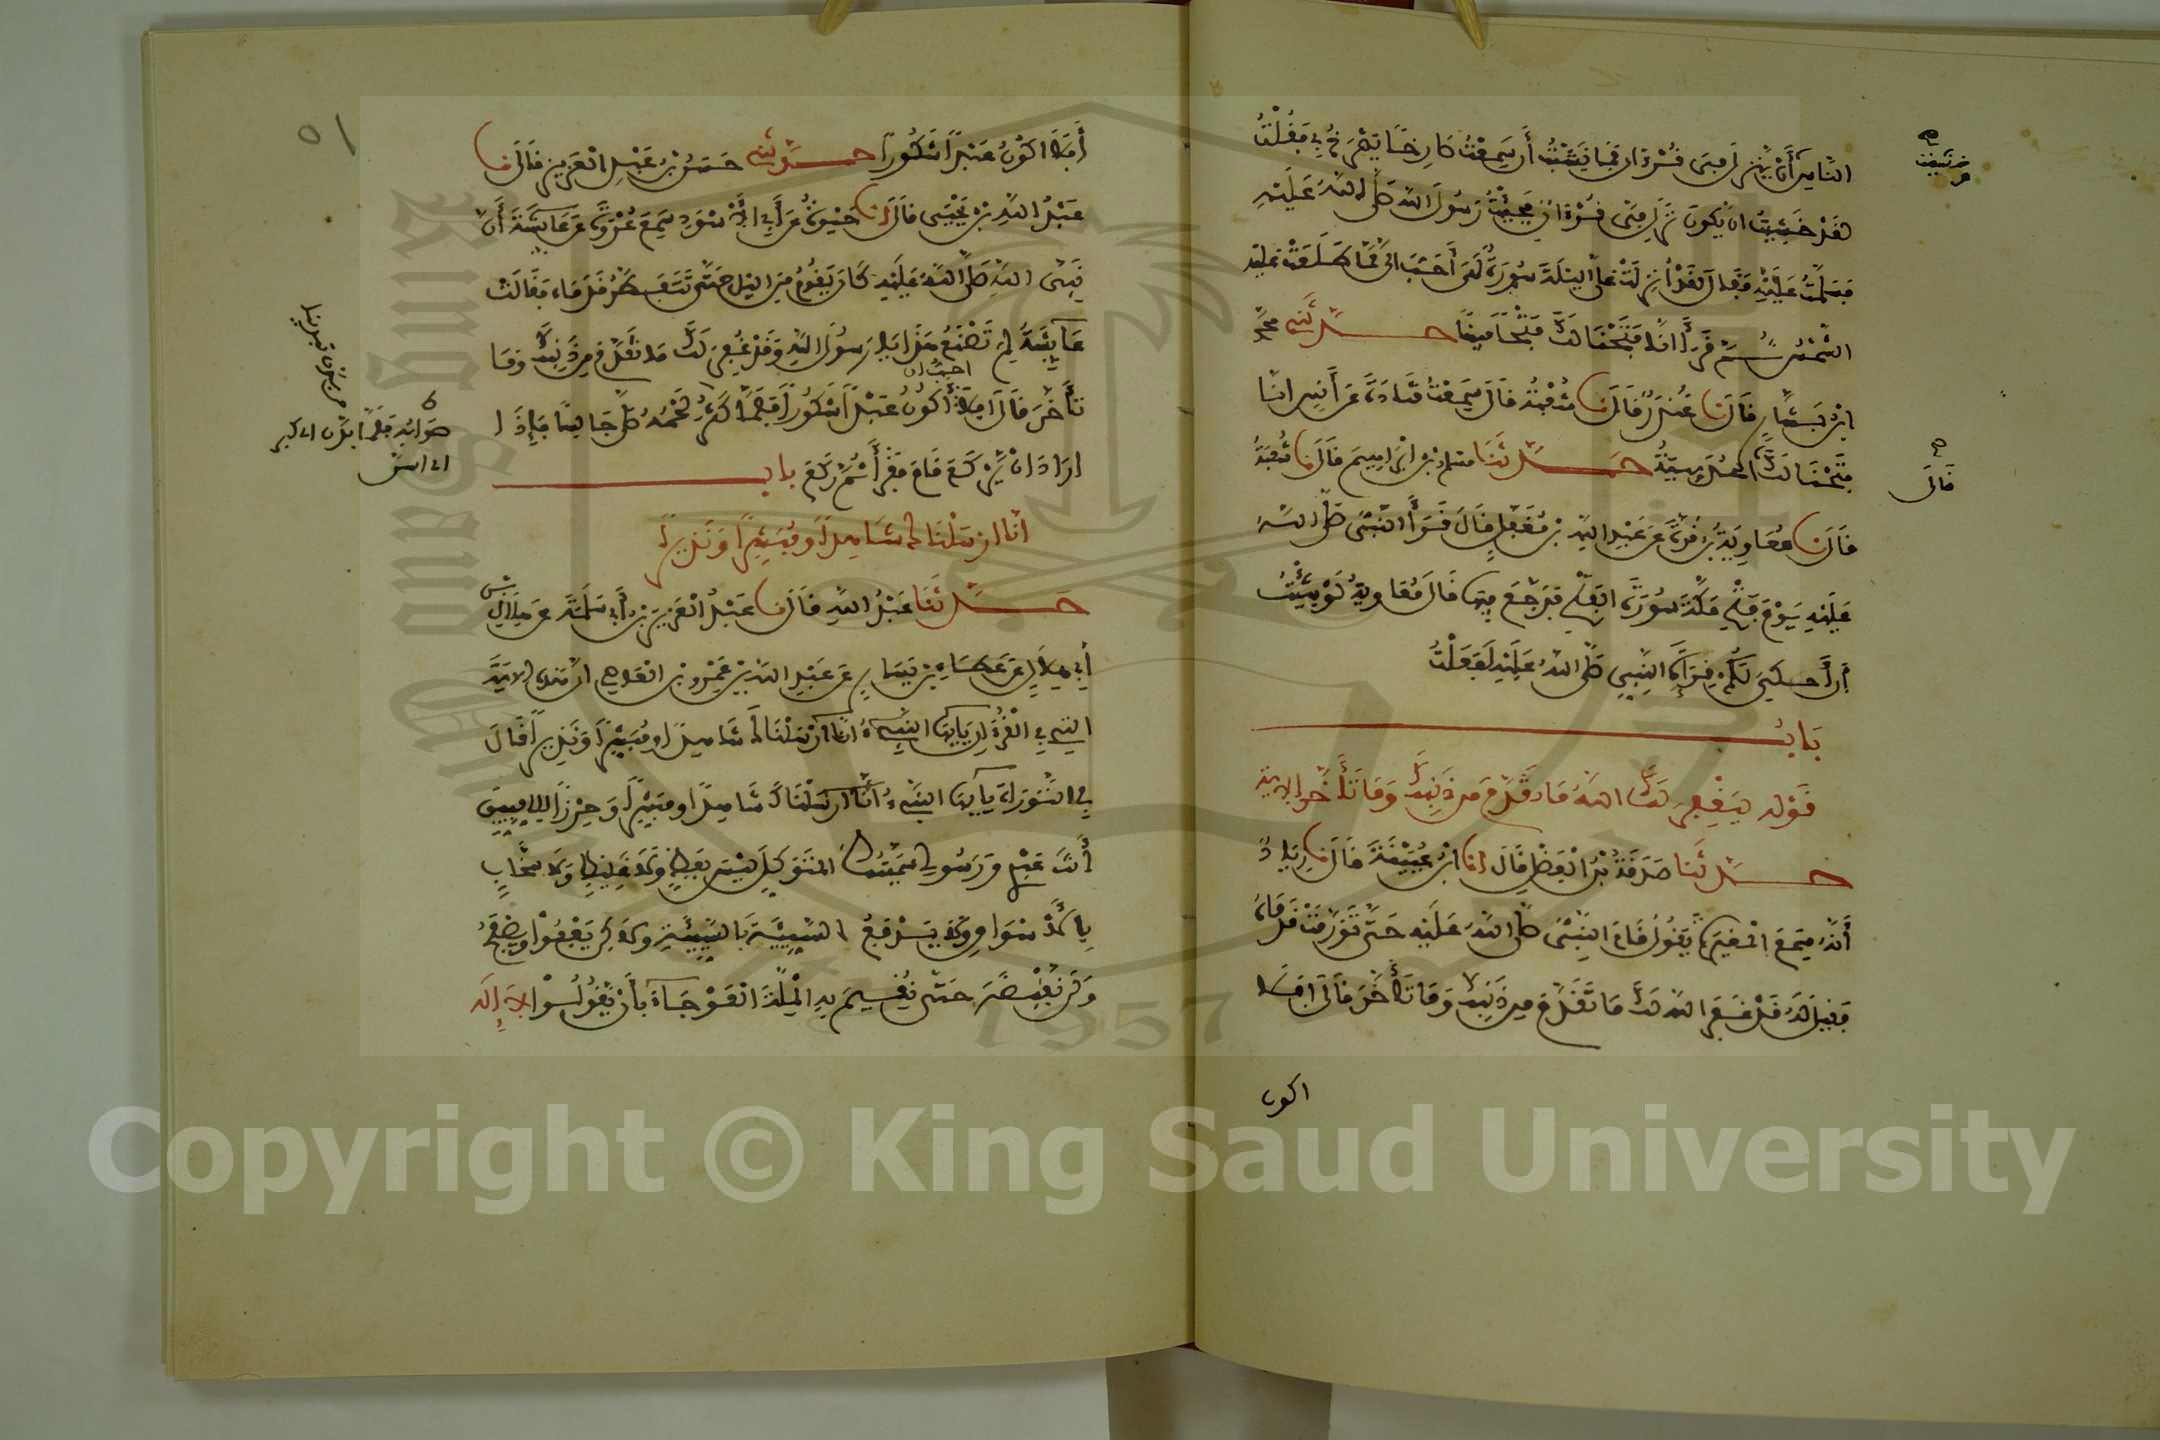 الناس أن ينزل في قرآن فما نشبت أن سمعت صارخا يصرخ بي فقلت
لقد خشيت ان يكون نزل في قرآن فجئت رسول الله صلى الله عليه
فسلمت عليه فقال لقد أنزلت علي الليلة سورة لهي أحب الي مما طلعت عليه
الشمس ثم قرأ انا فتحنا لك فتحا مبينا حدثني محمد
ابن بشار قال نا غندر قال نا شعبة قال سمعت قتادة عن أنس انا
فتحنا لك الحديبية حدثنا مسلم بن ابراهيم قال نا شعبة
قال نا معاوية بن قرة عن عبد الله بن مغفل قال قرأ النبي صلى الله
عليه يوم فتح مكة سورة الفتح فرجع فيها قال معاوية لو شئت
أن أحكي لكم قراءة النبي صلى الله عليه لفعلت
باب
قوله ليغفر لك الله ما تقدم من ذنبك وما تأخر الاية
حدثنا صدقة بن الفضل قال انا ابن عيينة قال نا زياد
أنه سمع المغيرة يقول قام النبي صلى الله عليه حتى تورمت قدماه
فقيل له قد غفر الله لك ما تقدم من ذنبك وما تأخر قال افلا
اكون
قال
٥١
أفلا اكون عبدا شكورا حدثني حسن بن عبد العزيز قال نا
عبد الله بن يحيى قال انا حيوة عن أبي الأسود سمع عروة عن عايشة أن
نبي الله صلى الله عليه كان يقوم من الليل حتى تتفطر قدماه فقالت
عايشة لم تصنع هذا يا رسول الله وقد غفر لك ما تقدم من ذنبك وما
احب ان
تأخر قال افلا أكون عبدا شكورا فلما كثر لحمه صلى جالسا فإذا
اراد ان يركع قام فقرأ ثم ركع باب
انا ارسلناك شاهدا ومبشرا ونذيرا
حدثنا عبد الله قال نا عبد العزيز بن أبي سلمة عن هلال بن
أبي هلال عن عطاء بن يسار عن عبد الله بن عمرو بن العاص ان هذه الاية
التي في القرآن يايها النبيء انا ارسلناك شاهدا ومبشرا ونذيرا قال
في التوراة يايها النبيء انا ارسلناك شاهدا ومبشرا وحرزا للاميين
أنت عبدي ورسولي سميتك المتوكل ليس بفظ ولا غليظ ولا سخاب
بالأسواق ولا يدفع السيئة بالسيئة ولكن يعفوا ويصفح
ولن نقبضه حتى نقيم به الملة العوجاء بأن يقولوا لا إله
Copyright © King Saud University
King Saud University
1957